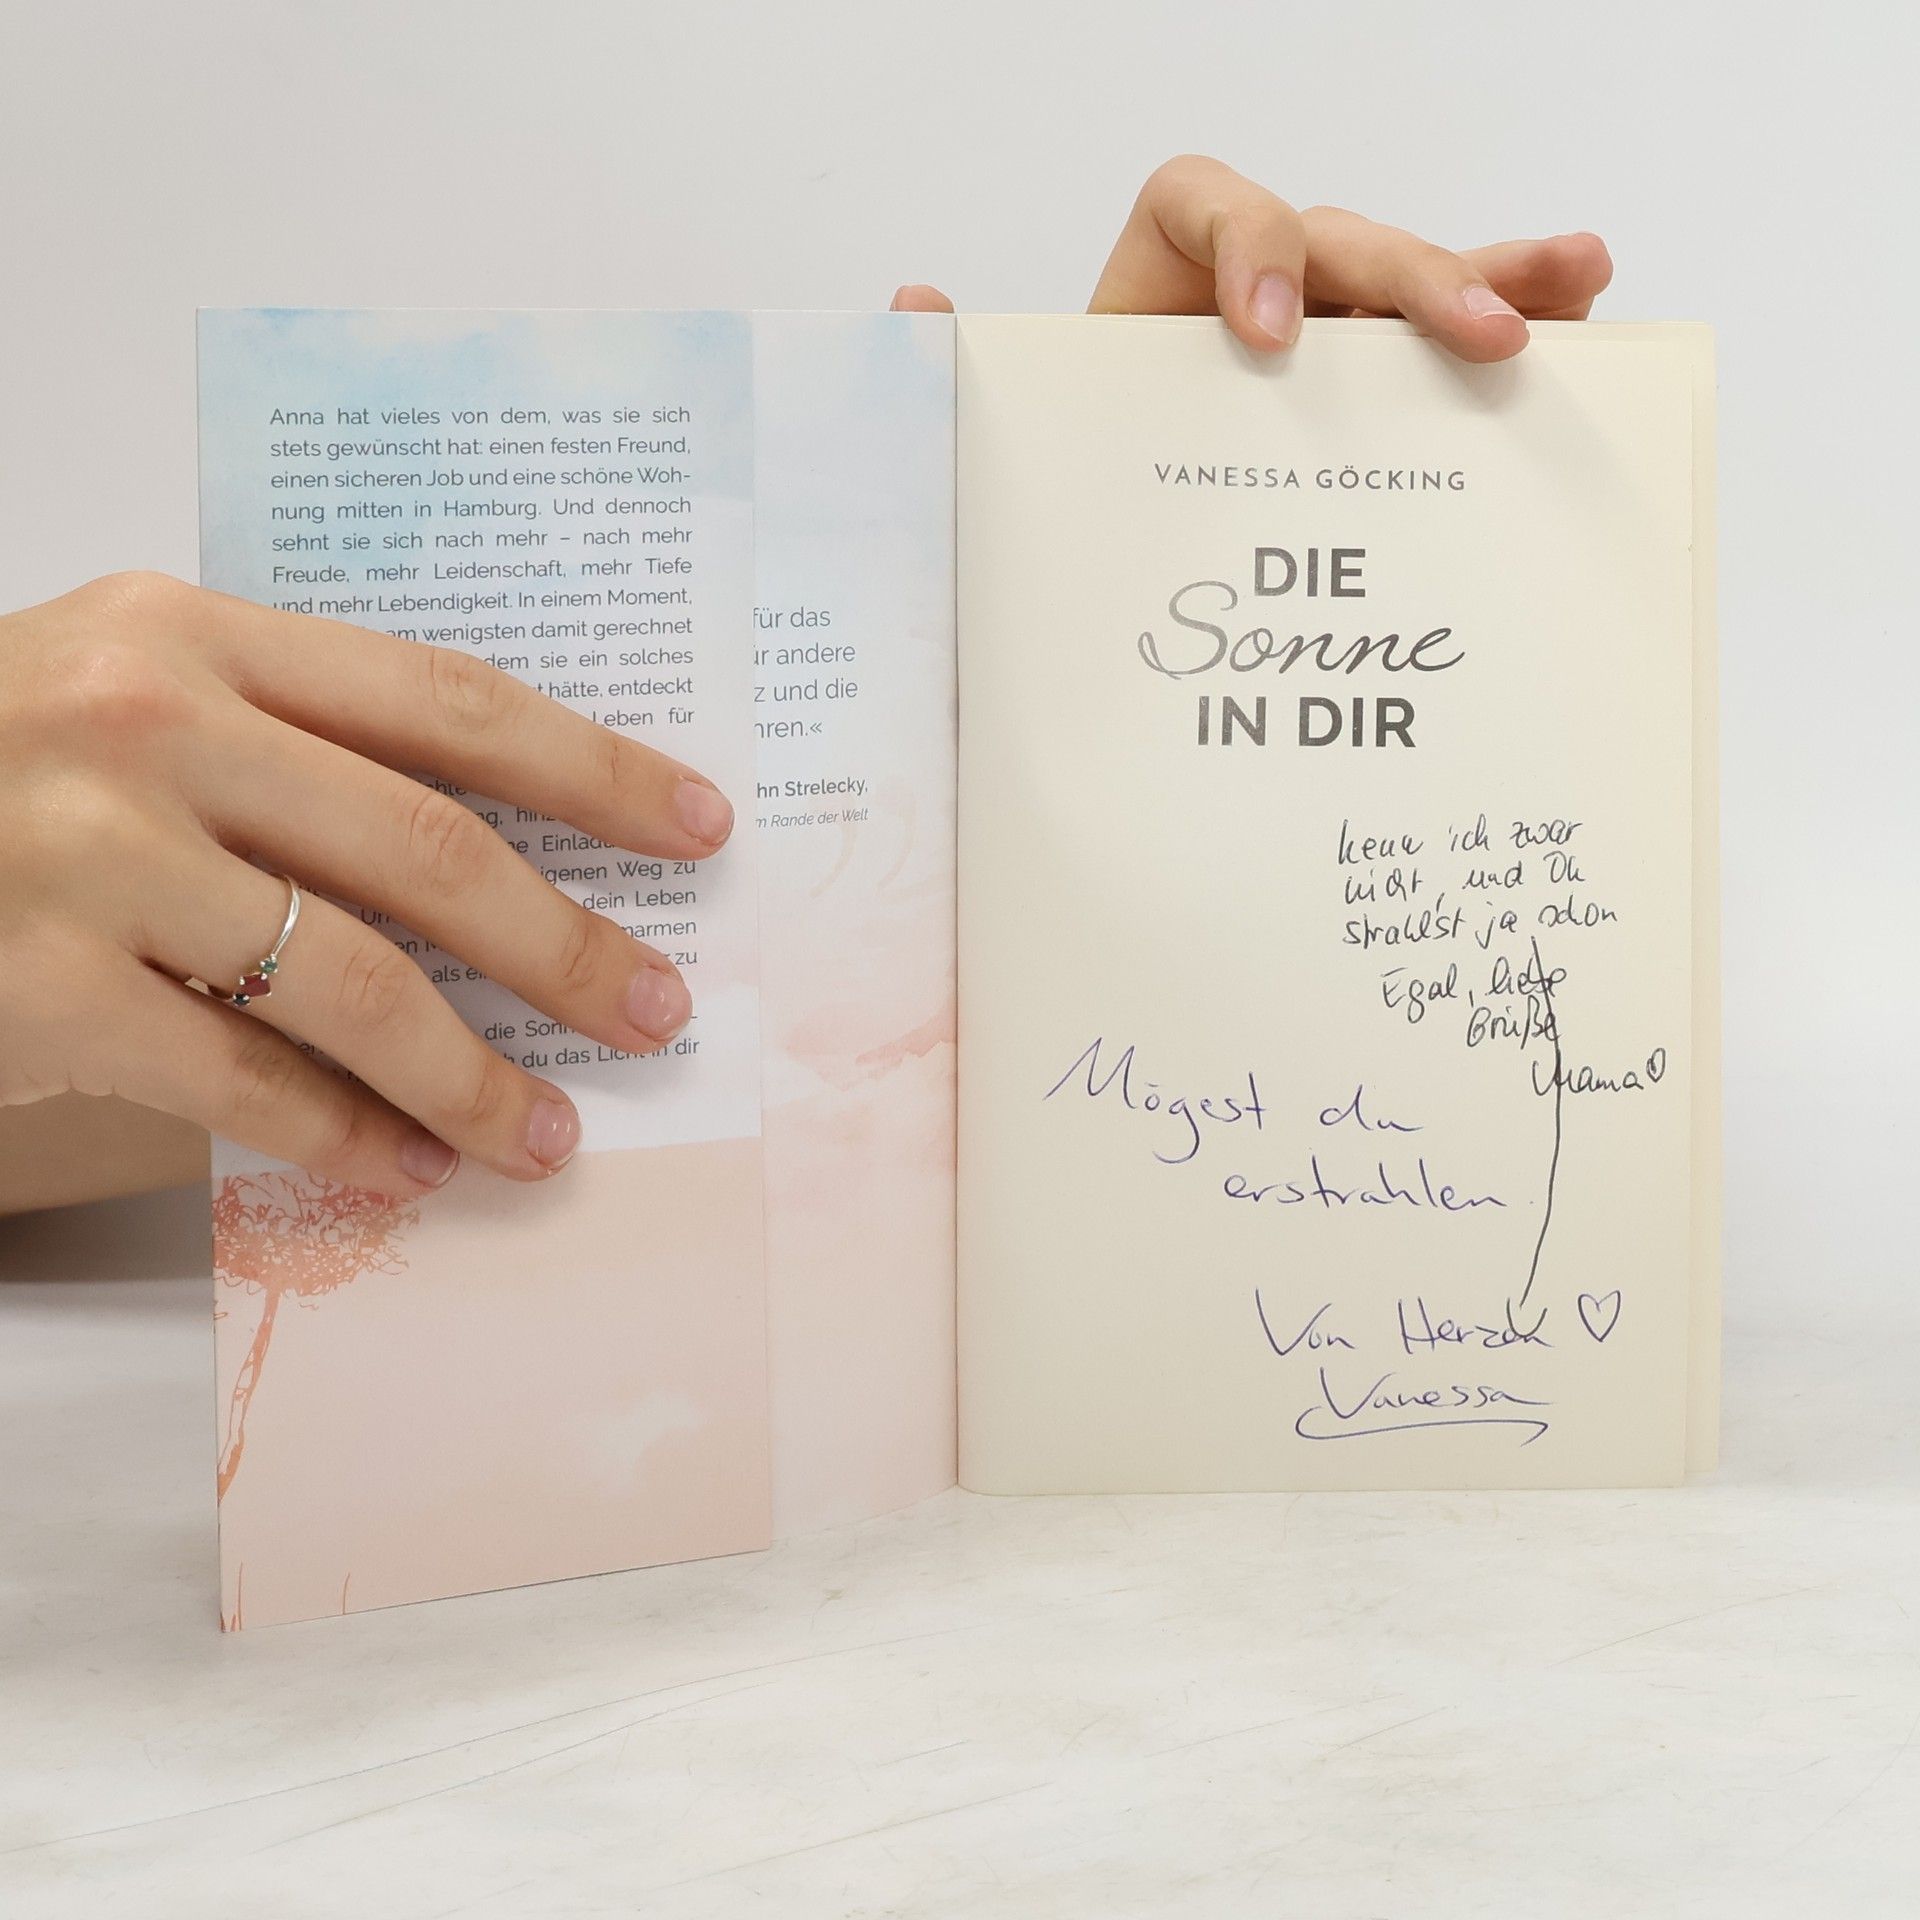 Anna hat vieles von dem, was sie sich
stets gewünscht hat: einen festen Freund,
einen sicheren Job und eine schöne Woh-
nung mitten in Hamburg. Und dennoch
sehnt sie sich nach mehr – nach mehr
Freude, mehr Leidenschaft, mehr Tiefe
und mehr Lebendigkeit. In einem Moment,
am wenigsten damit gerechnet
dem sie ein solches
hätte, entdeckt
Leben für
Einladu
igenen Weg zu
dein Leben
armen
zu
als ei
die Son
du das Licht in dir
für das
ür andere
z und die
hren.«
hn Strelecky,
m Rande der Welt
VANESSA GÖCKING
DIE
Sonne
IN DIR
kenn ich zwar
nicht, und Du
strahlst ja schon
Egal, liebe
Grüße
Mama
Mögest du
erstrahlen.
Von Herzen ♡
Vanessa